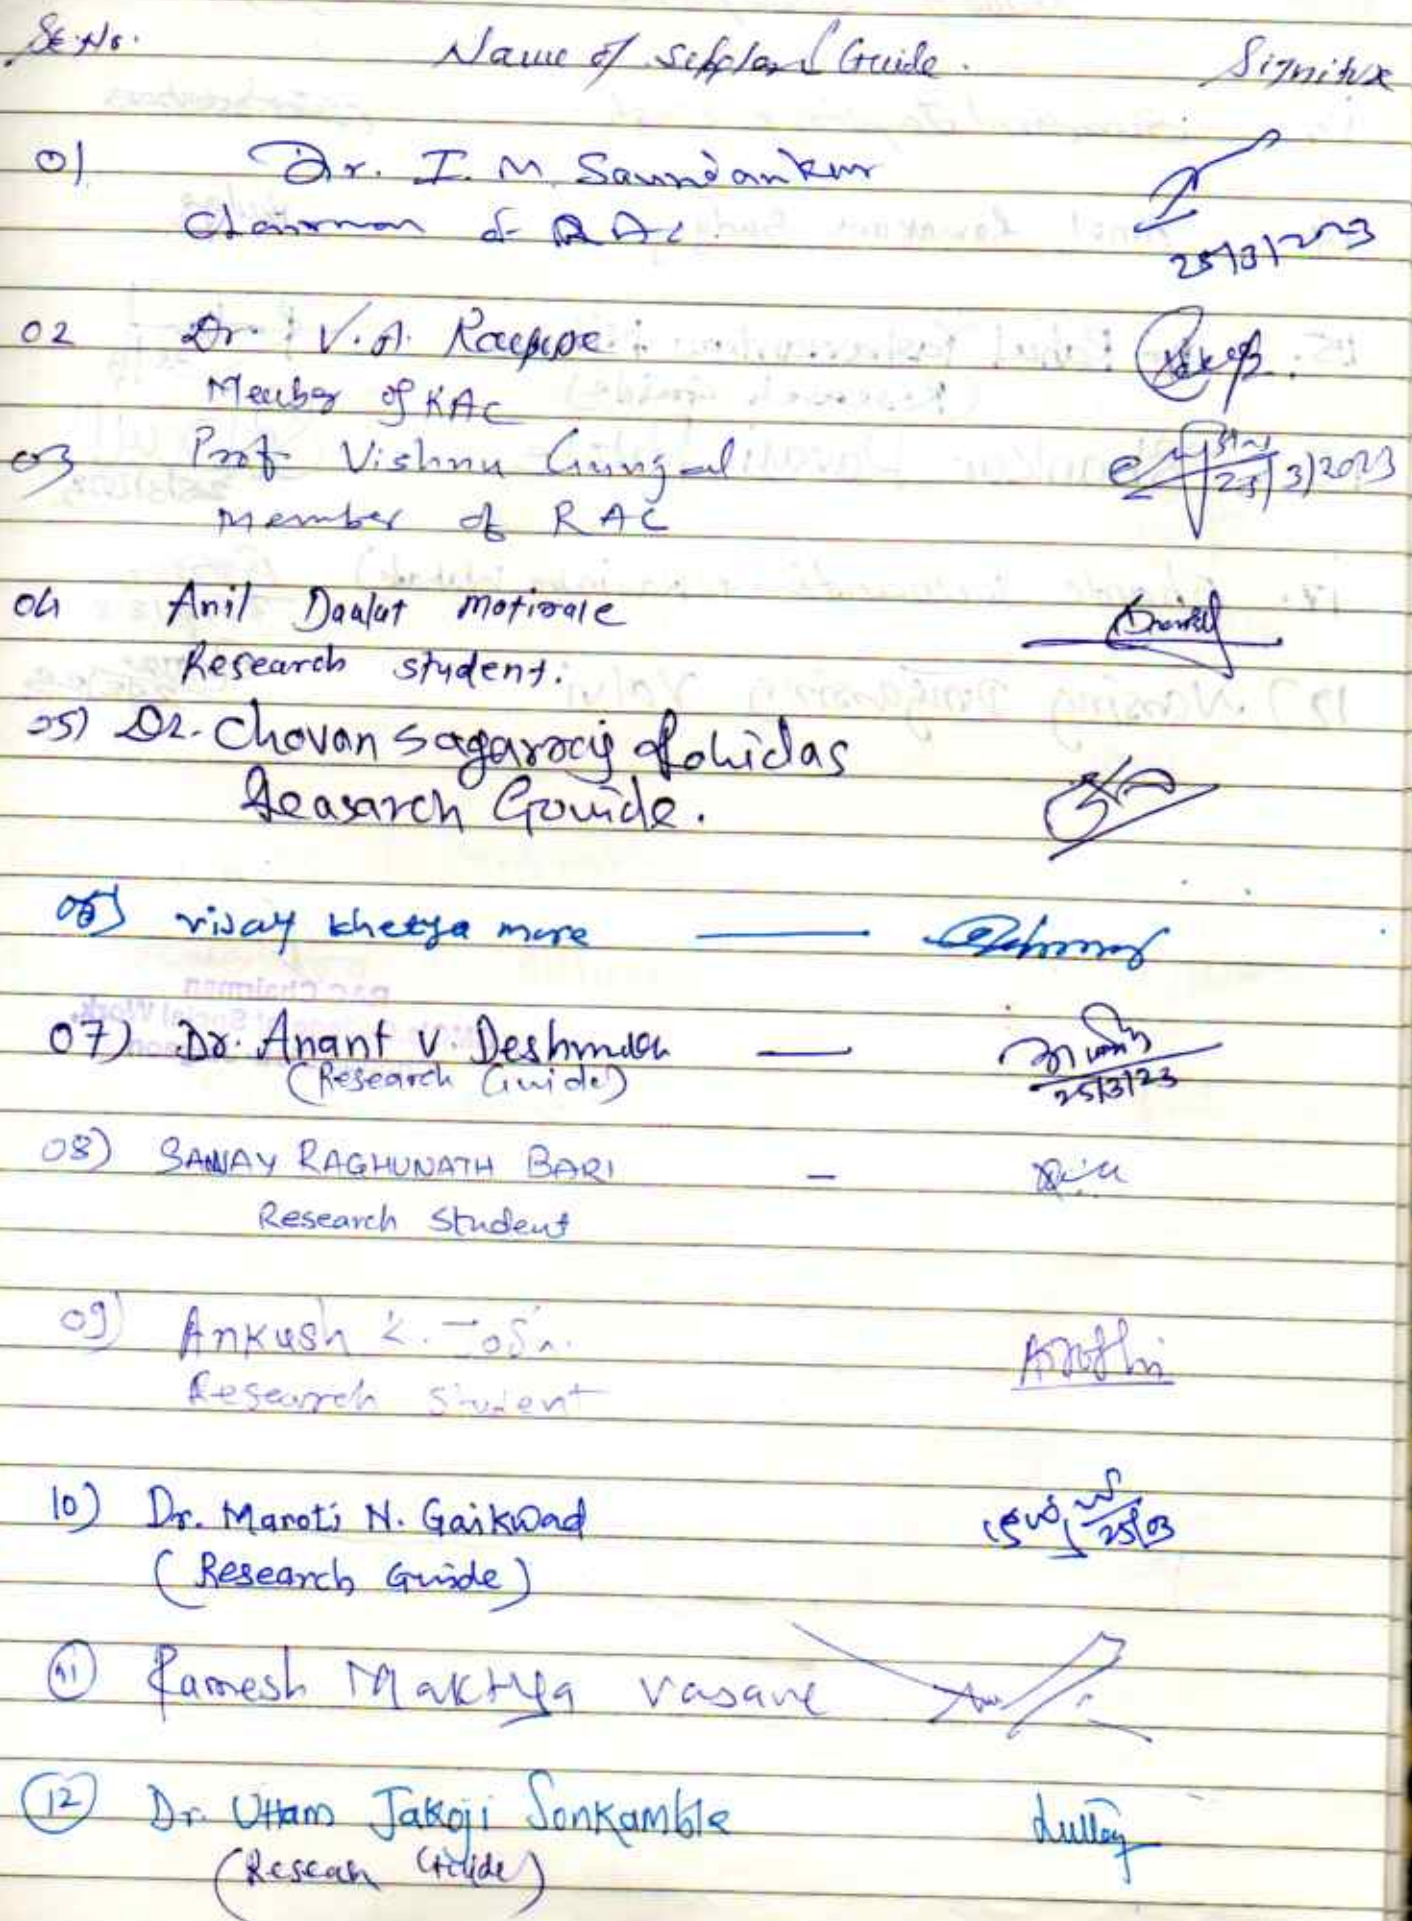 Sr.No. Name of Scholar / Guide. Signiture
01 Dr. I. M. Saundankar
Chairman of RAC
25/3/2023
02 Dr. V. A.
Member of RAC
03 Prof Vishnu Gungal
Member of RAC
25/3/2023
04 Anil Daalat Motirale
Research student.
05) Dr. Chovan Sagarraj Rohidas
Reasarch Gouide.
06) vijay khetya more —
07) Dr. Anant V. Deshmukh —
(Research Guide)
25/3/23
08) SANJAY RAGHUNATH BARI -
Research Student
09) Ankush
Research Student
10) Dr. Maroti N. Gaikwad
25/03
(Research Guide)
11 Ramesh Maktya vasave
12 Dr. Uttam Jakoji Sonkamble
(Reseach Guide)